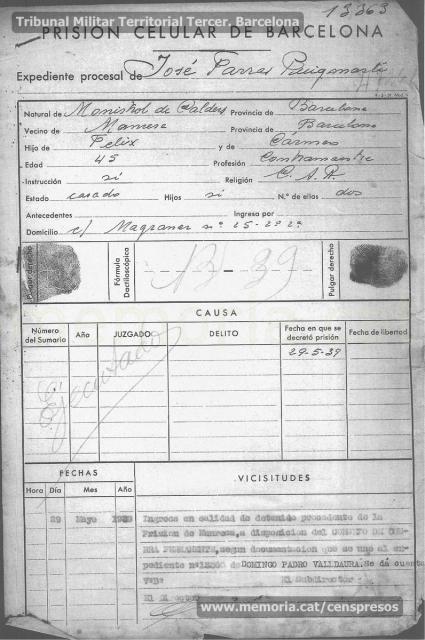 Tribunal Militar Territorial Tercer. Barcelona
13363
PRISIÓN CELULAR DE BARCELONA
Expediente procesal de José Parras Puigmartí
Natural de Monistrol de Calders Provincia de Barcelona
Vecino de Manresa Provincia de Barcelona
Hijo de Félix y de Carmen
Edad 45 Profesión Contramaestre
Instrucción sí Religión C. A. R.
Estado casado Hijos sí N.º de ellos dos
Antecedentes Ingresa por
Domicilio c/ Magraner nº 25-2º 2ª
Pulgar derecho
Fórmula Dactiloscópica
13-39
Pulgar derecho
CAUSA
Número del Sumario Año JUZGADO DELITO Fecha en que se decretó prisión Fecha de libertad
29-5-39
Ejecutado
FECHAS VICISITUDES
Hora Día Mes Año
29 Mayo 1939 Ingresa en calidad de detenido procedente de la
Prision de Manresa, a disposicion del CONSEJO DE GUE-
RRA PERMANENTE, segun documentacion que se une al ex-
pediente nº de DOMINGO PADRO VALLDAURA. Se dá cuenta
El Subdirector
El
www.memoria.cat/censpresos